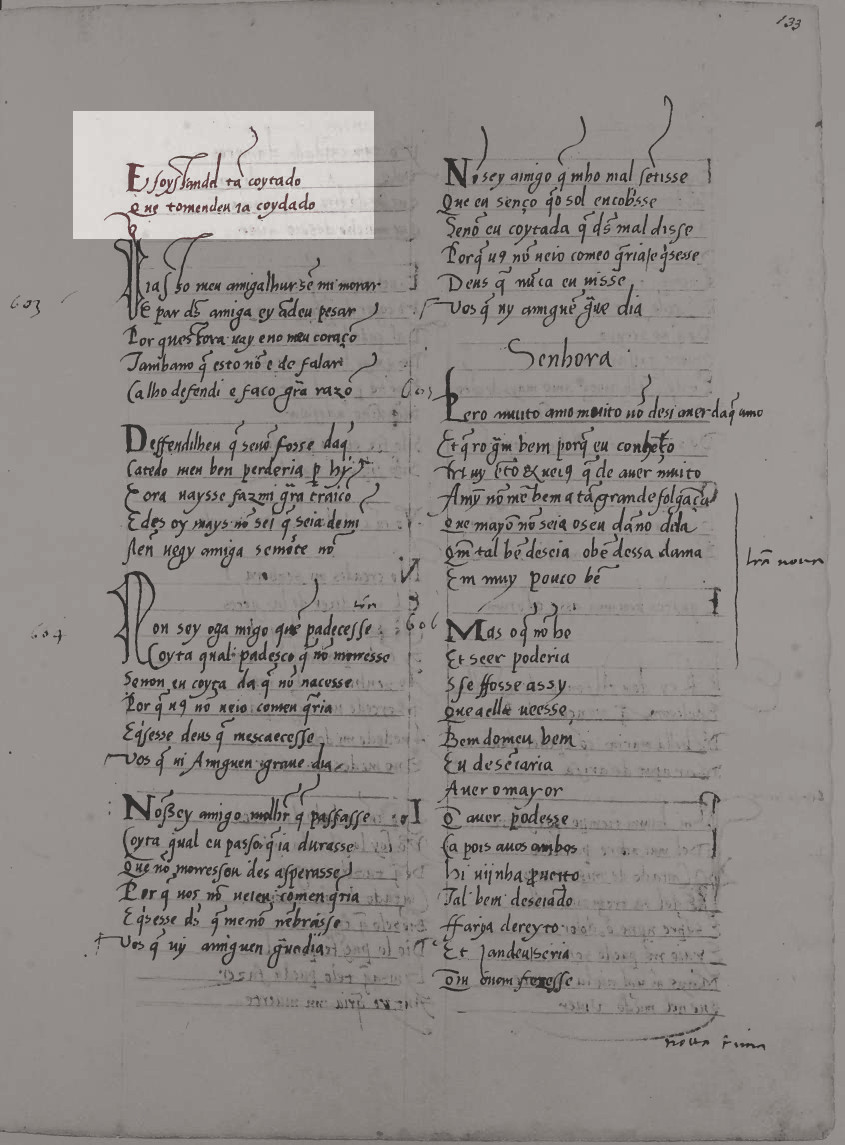 133
E soyssandel tā coytado
Que tomendeu ia coydado
603
E par ds amiga ey adeu pesar
Por
Tambano q̄ esto nō e de falar
Ca lho defendi e faco grā razō
Deffendilheu q̄ senō fosse daq̄
Catedo meu ben perderia p hy
E ora uaysse fazmi grā traicō
E des oy mays nō sei q̄ seia demi
uegy amiga semōte nō
604
Non sey oga migo que padecesse
Coyta qual padesco q̄ nō morresse
Senon eu coyta da q̄ nō nacesse
Por q̄ u9 nō ueio comeu q̄ria
E q̄sesse deus q̄ mescaecesse
Vos q̄ ui Amiguen graue dia
Nossey amigo molhr q̄ passasse
Coyta qual eu passo q̄ ia durasse
Que nō morressou des asperasse
Por q uos nō ueieu comen q̄ria
E q̄sesse ds q̄ me nō nēbrasse
Vos q̄ uy amiguen
No sey amigo q̄ mho mal sētisse
Que eu senço q̄o sol encobsse
Senō eu coytada q̄ ds mal disse
Porq̄ u9 nō ueio comeo q̄ria
Deus q̄ nūca eu uisse
Vos q̄ uy amigué dia
Senhora
605
Pero muito amo muito nō desi auer daq̄ amo
Et q̄ro bem porq̄ eu
q̄ de auer muito
A my nō me bem a tā grande folgāca
Que mayō nō seia o seu dāno dela
Qm tal bē deseia o bē dessa dama
Em muy pouco bē
606
Mas o q̄ nō he
Et seer poderia
Sse ffosse assy
Que aella ueesse
Bem domeu bem
Eu deseiaria
Auer o mayor
auer podesse
Ca pois auos ambos
hi uijnha proueito
Tal bem deseiado
ffarya dereyto
Et Sandeu seria
nom fezesse
noua rima